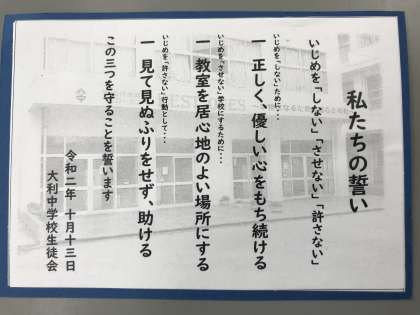 私たちの誓い
いじめを「しない」「させない」「許さない」
いじめを「しない」ために・・・
一 正しく、優しい心をもち続ける
いじめを「させない」学校にするために・・・
一 教室を居心地のよい場所にする
いじめを「許さない」行動として・・・
一 見て見ぬふりをせず、助ける
この三つを守ることを誓います
令和二年 十月十三日
大利中学校生徒会